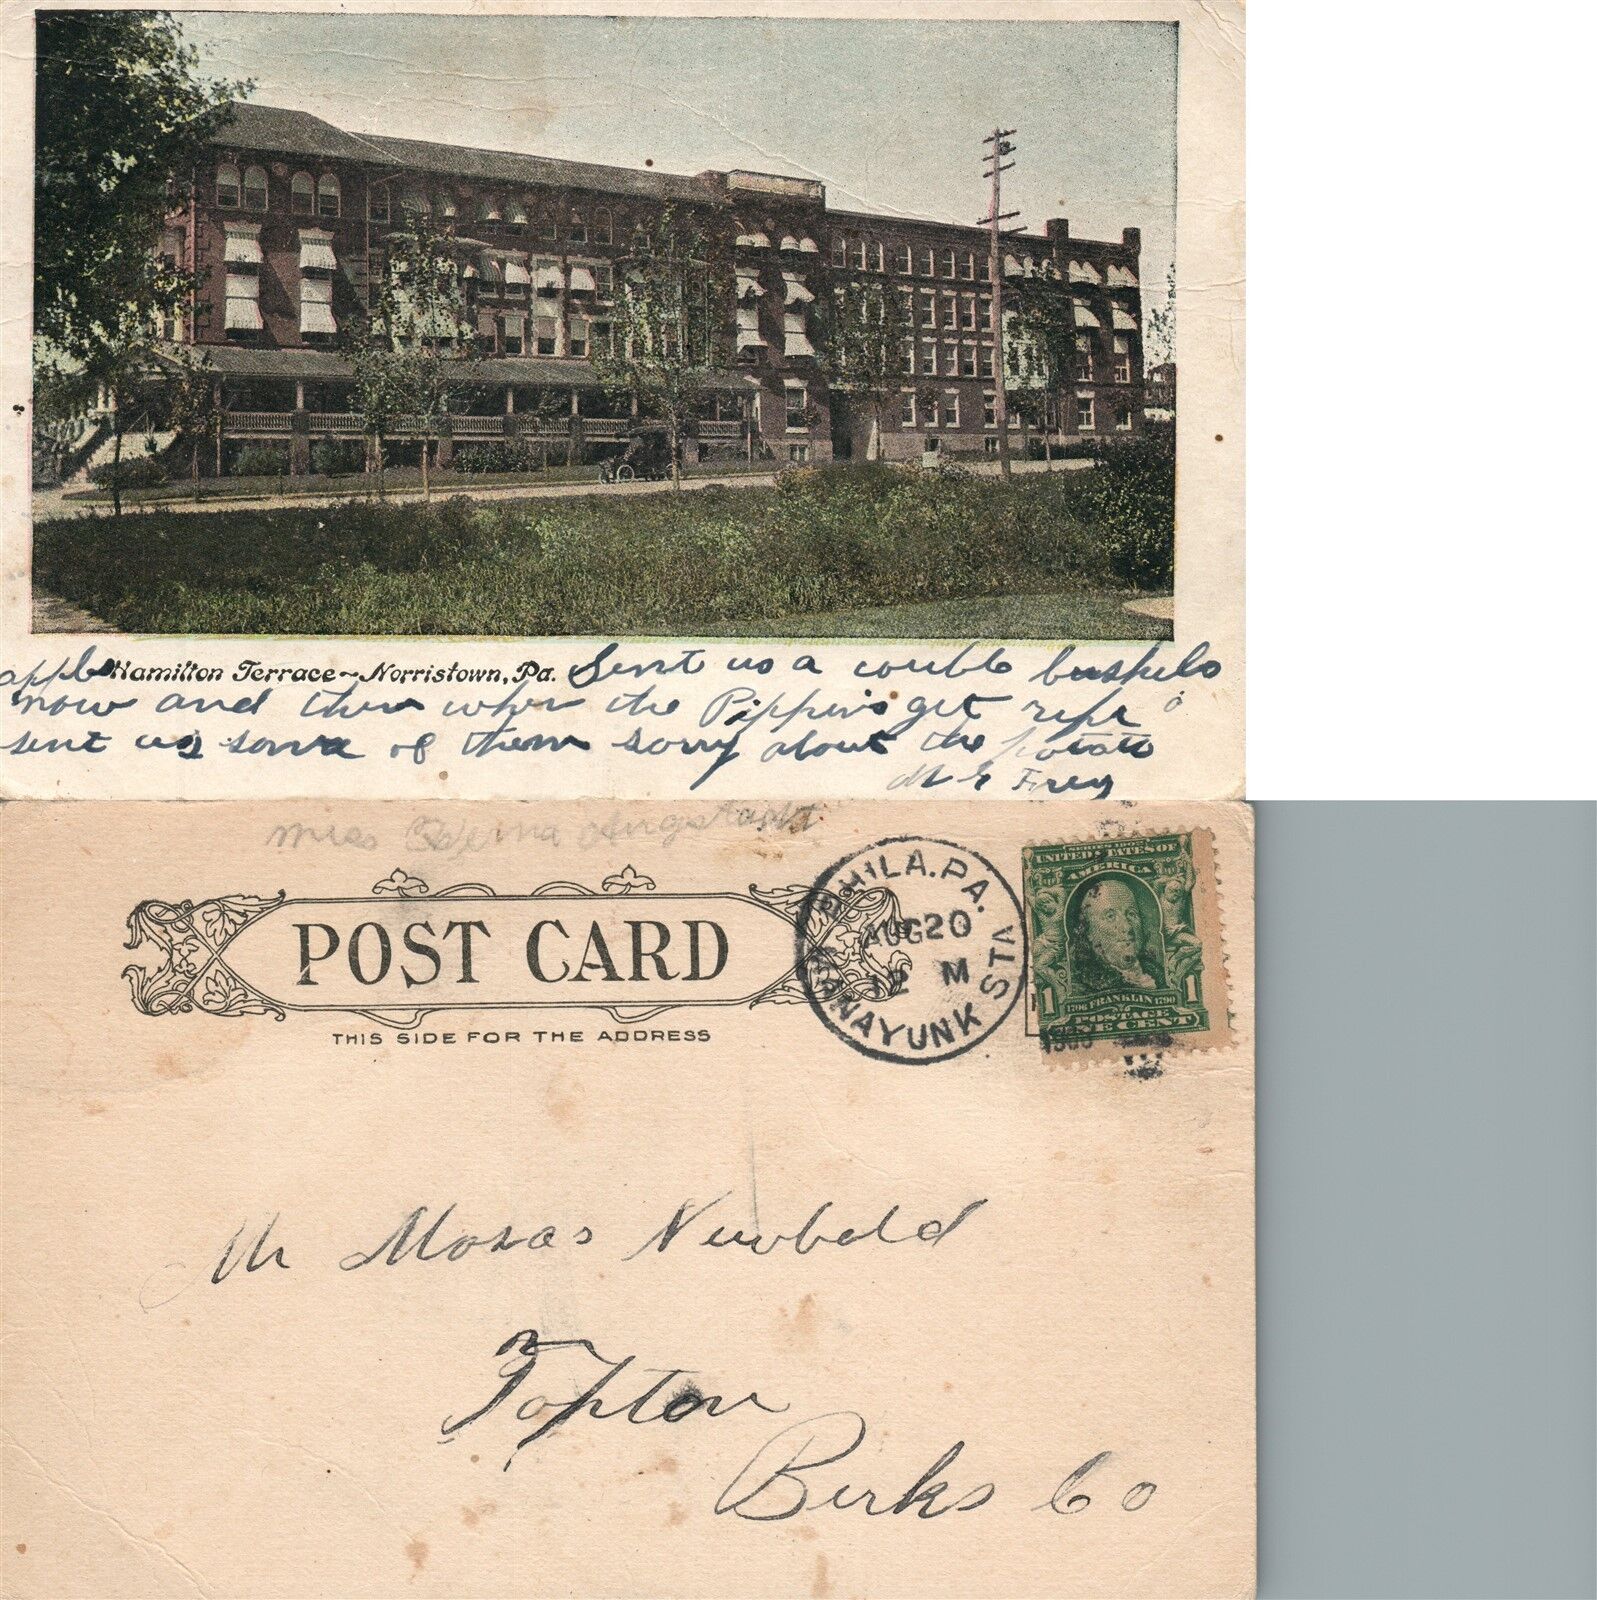 Hamilton Terrace~Norristown, Pa. Sent us a couble bushels
apples
now and then when the Pippins get ripe
sent us some of them sorry about the potato
M E Frey
Miss
POST CARD
THIS SIDE FOR THE ADDRESS
PHILA. PA.
AUG 20
12 M
MANAYUNK STA
SERIES 1902
UNITED STATES OF
AMERICA
1 1
1706 FRANKLIN 1790
POSTAGE
ONE CENT
Mr Mosas Newbold
Topton
Berks Co